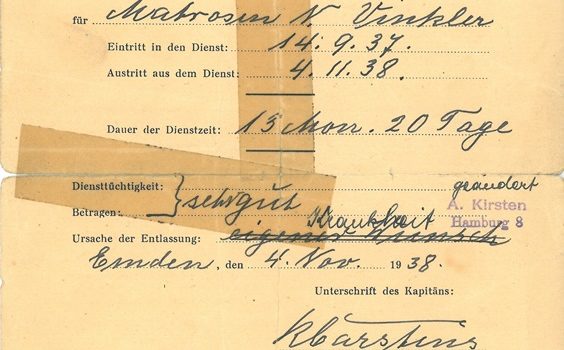 für Matrosen N. Vinkler
Eintritt in den Dienst: 14. 9. 37.
Austritt aus dem Dienst: 4. 11. 38.
Dauer der Dienstzeit: 13 Mon. 20 Tage
Diensttüchtigkeit:
Betragen: } sehr gut
geändert
A. Kirsten
Hamburg 8
Krankheit
Ursache der Entlassung: eigener Wunsch
Emden, den 4. Nov. 1938.
Unterschrift des Kapitäns: